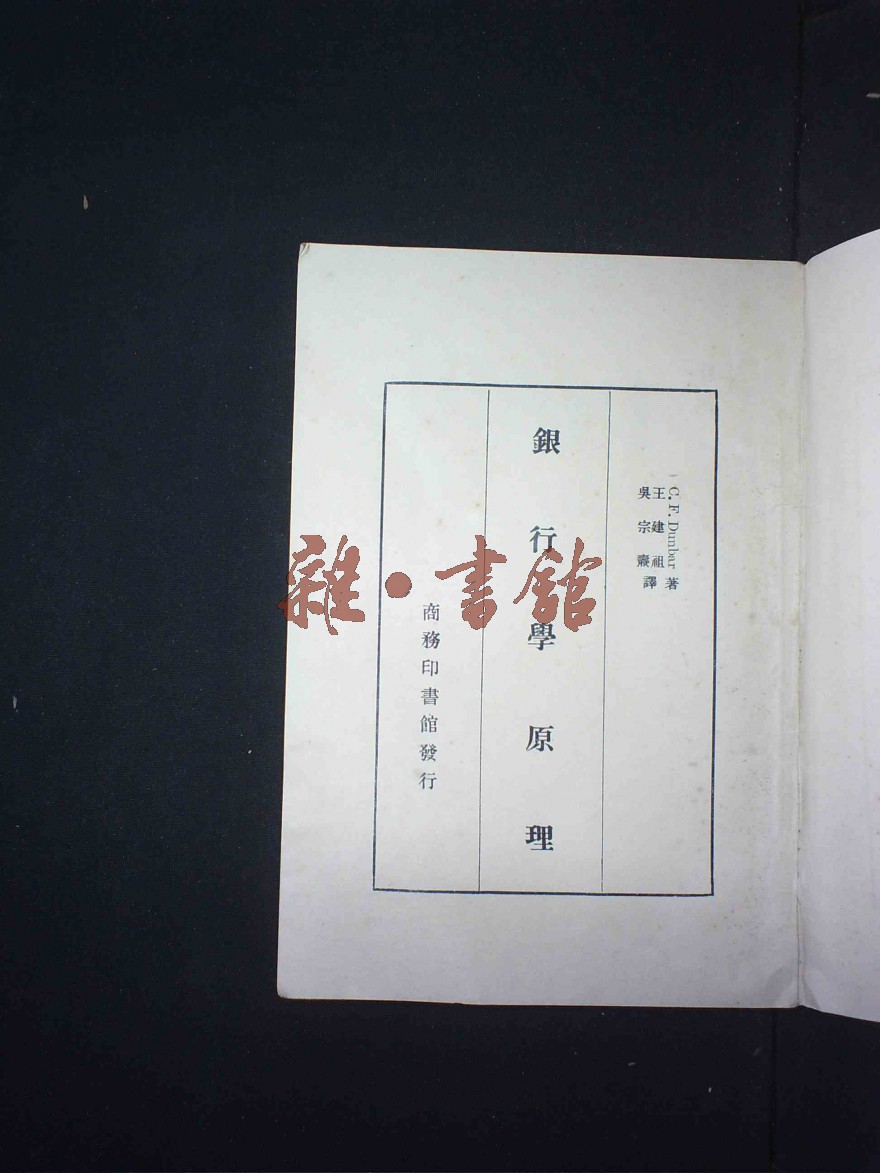 C. F. Dunbar 著
王建祖
吳宗燾
譯
銀行學原理
商務印書館發行
雜·書館